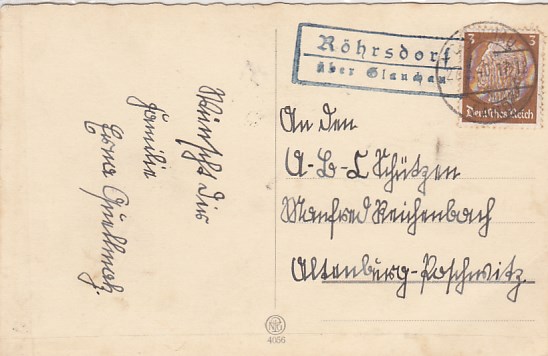 Wünscht Dir
Familie
Erna Quellmalz.
Röhrsdorf
über Glauchau
3 3
Deutsches Reich
An den
A-B-C Schützen
Manfred Reichenbach
Altenburg-Poschwitz
4056